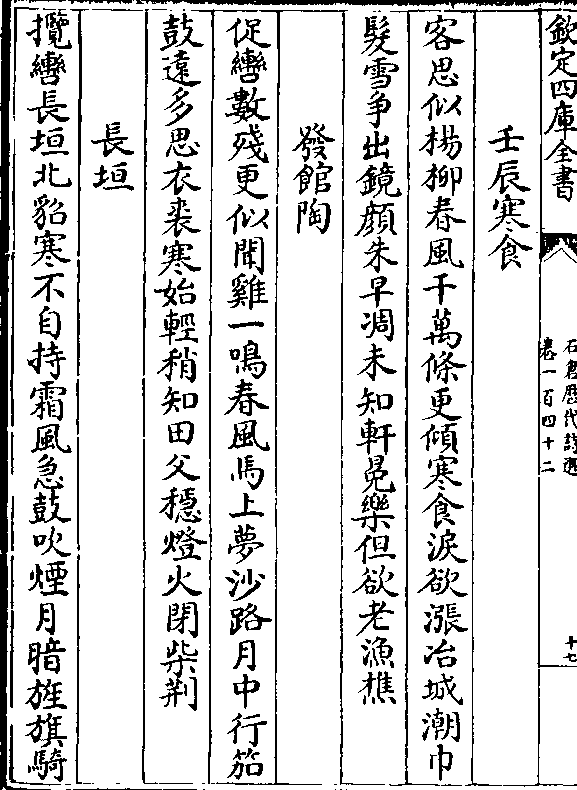 欽定四庫全書
石倉歷代詩選
卷一百四十二
十七
壬辰寒食
客思似楊柳春風千萬條更傾寒食淚欲漲冶城潮巾
髮雪争出鏡顔朱早凋未知軒冕樂但欲老漁樵
發館陶
促轡數殘更似聞雞一鳴春風馬上夢沙路月中行笳
鼓遠多思衣裘寒始輕稍知田父穩燈火閉柴荆
長垣
攬轡長垣北貂寒不自持霜風急鼓吹煙月暗旌旗騎